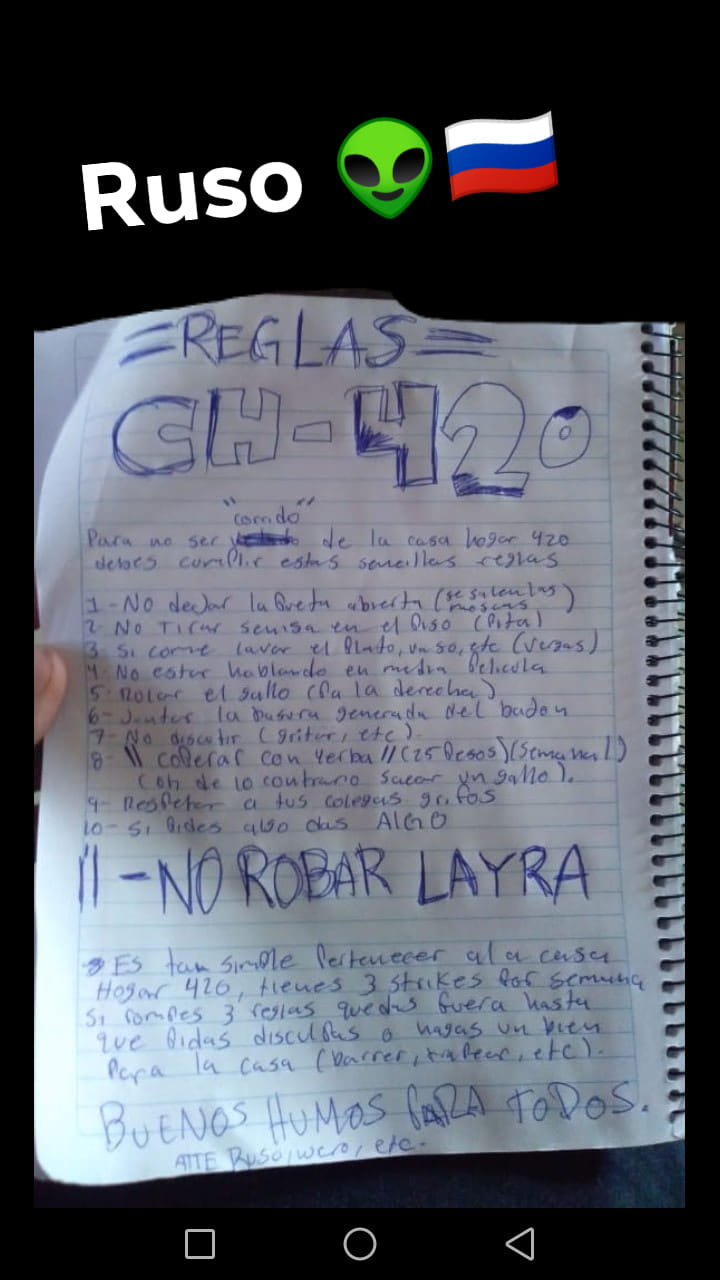 Ruso 👽🇷🇺
=REGLAS=
CH-420
"corrido"
Para no ser de la casa hogar 420
debes cumplir estas sencillas reglas
1-No dejar la pueta abierta (se salen las moscas)
2- No Tirar senisa en el piso (Pita)
3- Si come lavar el Plato, vaso, etc (Vergas)
4- No estar hablando en media Pelicula
5- Rolar el gallo (Pa la derecha)
6- Juntar la basura generada del bajon
7- No discutir (gritar, etc).
8- \\ coperar con Yerba // (25 Pesos) (Semanal)
(oh de lo contrario sacar un gallo).
9- Respetar a tus colegas grifos
10- Si Pides algo das ALGO
11-NO ROBAR LAYRA
Es tan simple Pertenecer al a casa
Hogar 420, tienes 3 strikes Por semana
Si rompes 3 reglas quedas fuera hasta
que Pidas disculpas o hagas un bien
Para la casa (barrer, trapear, etc).
BUENOS HUMOS PARA TODOS.
ATTE Ruso, wero, etc.